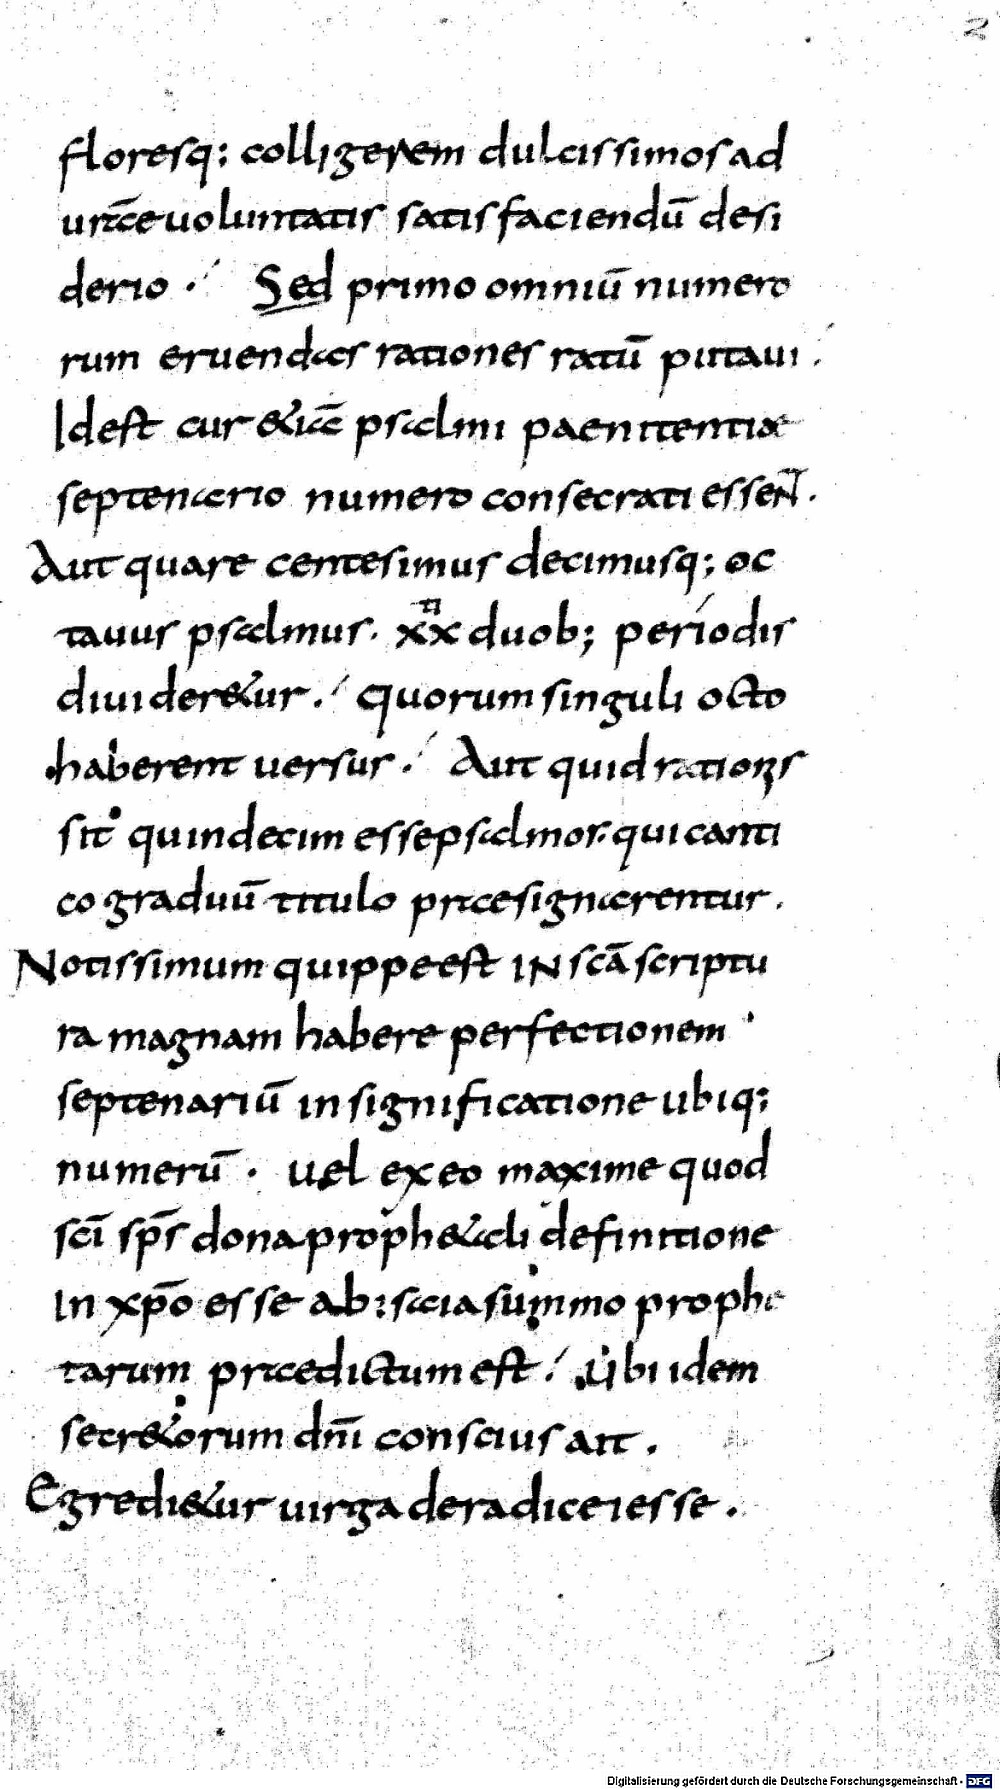 2
floresq; colligerem dulcissimos ad
urãe uoluntatis satisfaciendū desi
derio. Sed primo omniū numero
rum eruendas rationes ratū putaui.
Idest cur &iā psalmi paenitentiae
septenario numero consecrati essent.
Aut quare centesimus decimusq; oc
tauus psalmus. xx ti duob; periodis
diuider&ur. quorum singuli octo
haberent uersus. Aut quid rationis
sit quindecim esse psalmos. qui canti
co graduū titulo praesignarentur.
Notissimum quippe est IN scā scriptu
ra magnam habere perfectionem
septenariū in significatione ubiq;
numerū. uel ex eo maxime quod
scī sp̄s dona proph&ali definitione
In xp̄o esse ab isaia summo prophe
tarum praedictum est. Ubi idem
secr&orum dn̄i conscius ait.
Egredi&ur uirga de radice iesse.
Digitalisierung gefördert durch die Deutsche Forschungsgemeinschaft - DFG